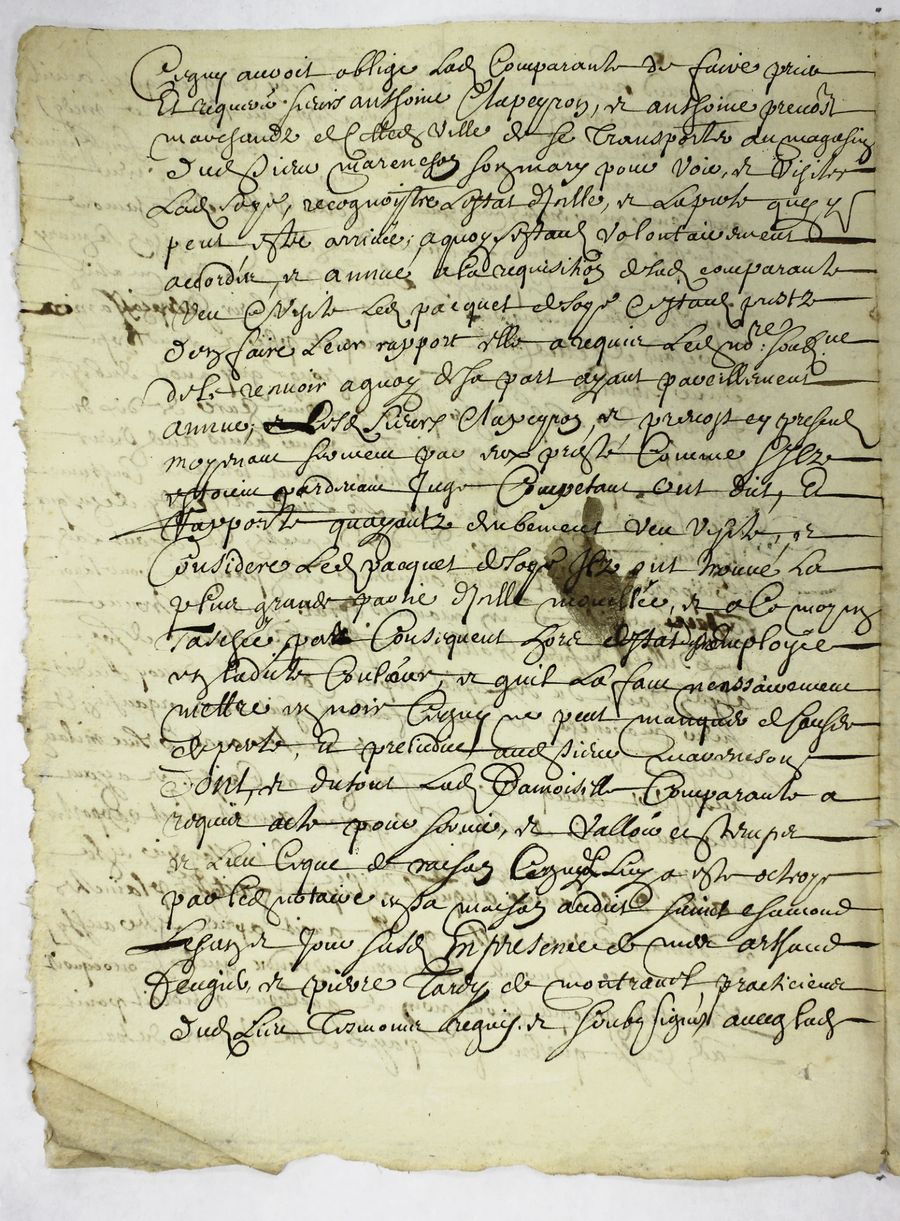 Cequy auroit obligé Lad Comparante de faire prier
Et requerir sieurs anthoine Clapeyron, et anthoine preuost
marchandz de Cette Ville de se Transporter au magasin
dud sieur marenchon son mary pour Voir, et Visiter
Lad soye, recognoistre Lestat dicelle, et Laperte quey y
peut estre arriuée, aquoy sestantz volontairement
accordés, et annué a la requisition de lad comparante
Veu et visité Led pacquet desoye Estantz prestz
den faire Leur rapport elle a requis Led no.re soubz.ne
de le receuoir aquoy de sa part ayant pareillement
annué, Lesd sieurs Clapeyron, et preuost cy presentz
moyenant serment par eux presté Comme silz
estoient pardeuant Juge Competant ont dit, et
Rapporté quayantz deubement veu visité, et
Consideré Led pacquet desoye Ilz ont trouué La
plus grande partie dicelle mouillée, et a Ce moyen
Taschée, par Consequent hors destat destre employée
en ladite Couleur, et quil La faut necessairement
mettre en noir Cequy ne peut manquer de causer
de perte, et preiudice aud sieur marenchon
Dont, et dutout Lad Damoiselle Comparante a
requis acte pour seruir, et valloir en temps
et Lieu Ceque de raison Cequy Luy a esté octroyé
par Led notaire en sa maison audit saint chamond
Les an et Jour susd En presence de mre arthaud
, et pierre Tardy de montrauel practiciens
dud Lieu Tesmoins requis et soubz signés auecq lad